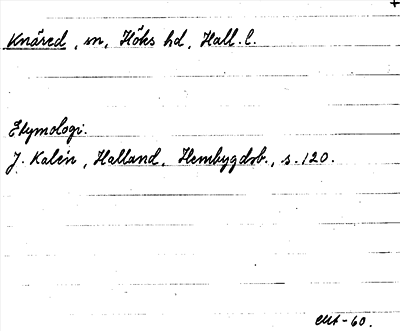 Knäred, sn, Höks hd, Hall. l.
Etymologi.
J. Kalén, Halland, Hembygdsb., s. 120.
-60.